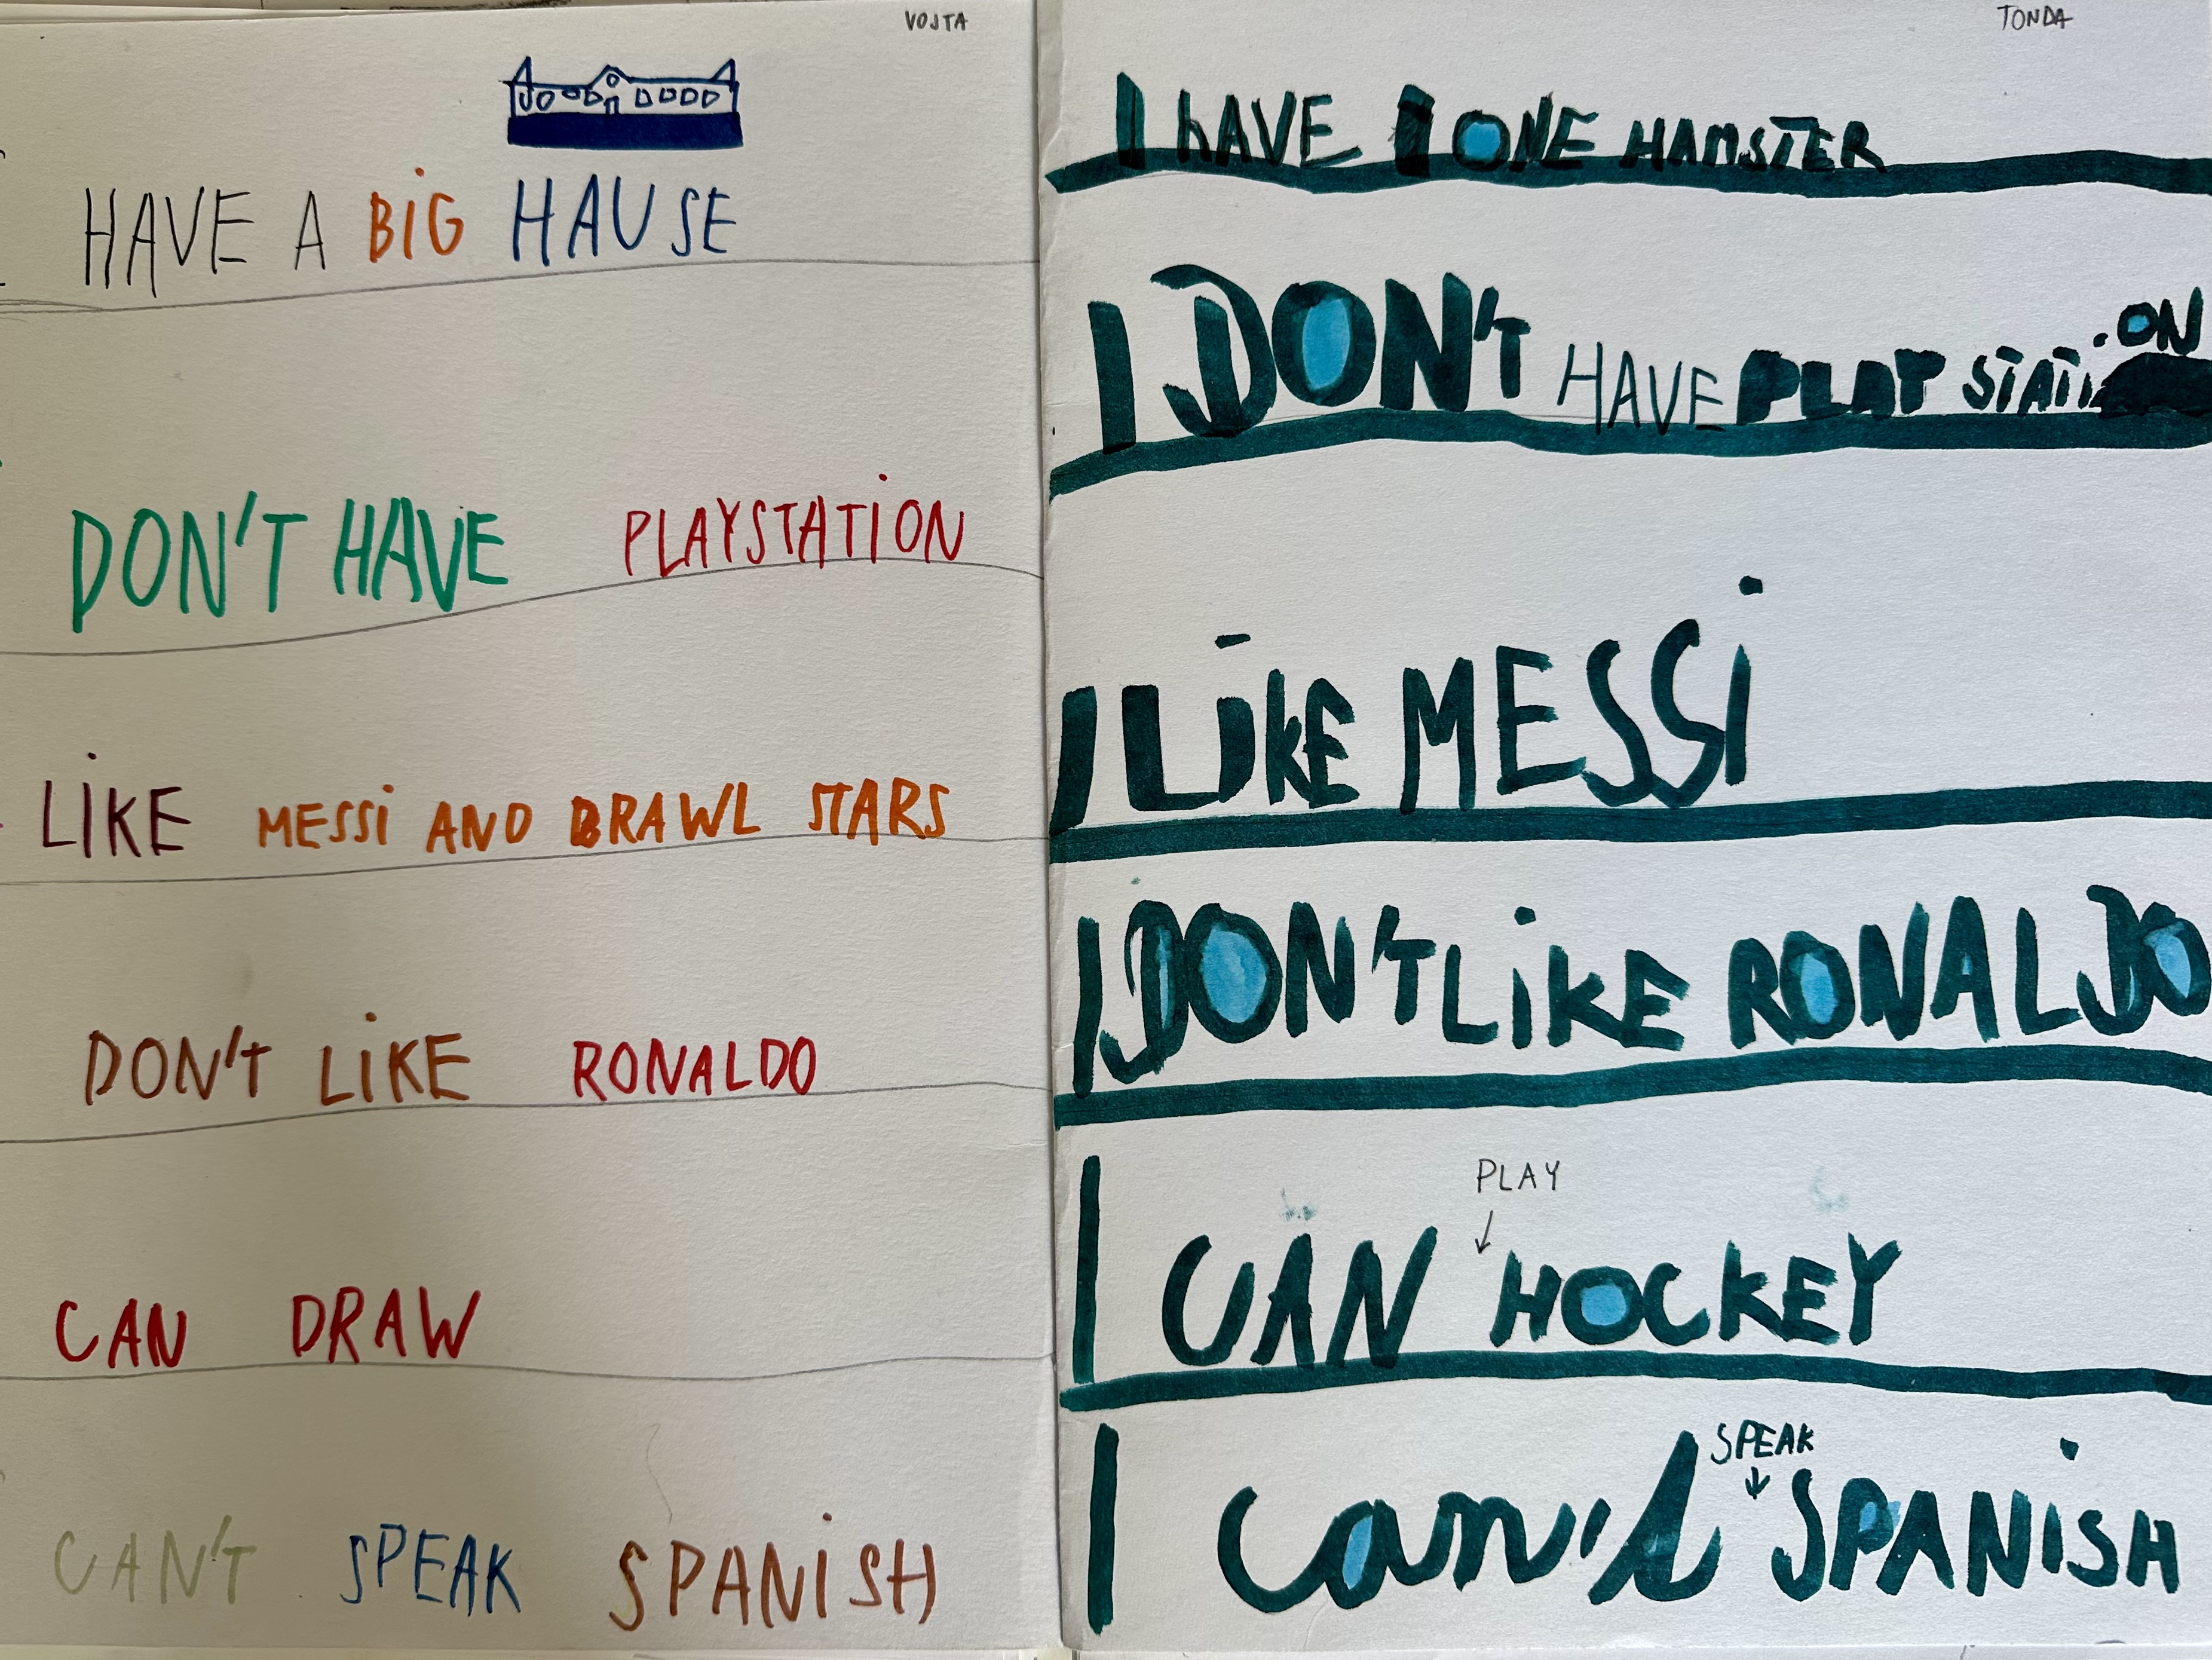 VOJTA
HAVE A BiG HAUSE
DON'T HAVE PLAYSTATiON
LiKE MESSi AND BRAWL STARS
DON't LiKE RONALDO
CAN DRAW
CAN'T SPEAK SPANiSH
TONDA
I hAVE ONE HAMSTER
I DON't HAVE PLAY STATiON
I LiKE MESSi
I DON't LiKE RONALDO
PLAY
I CAN HOCKEY
SPEAK
I can't SPANiSH